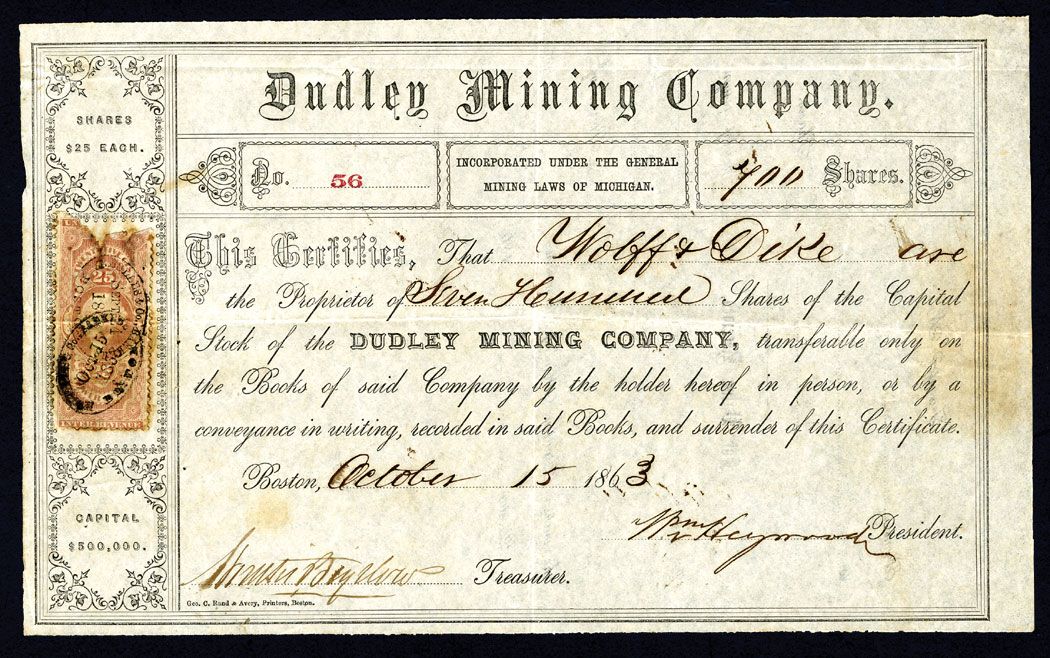 Dudley Mining Company.
SHARES
$25 EACH.
No. 56
INCORPORATED UNDER THE GENERAL
MINING LAWS OF MICHIGAN.
700 Shares.
This Certifies, That Wolff & Dike are
the Proprietor of Seven Hundred Shares of the Capital
Stock of the DUDLEY MINING COMPANY, transferable only on
the Books of said Company by the holder hereof in person, or by a
conveyance in writing, recorded in said Books, and surrender of this Certificate.
Boston, October 15 1863
Wm Heywood President.
Bigelow Treasurer.
Geo. C. Rand & Avery, Printers, Boston.
25
INTER. REVENUE
CAPITAL
$500,000.